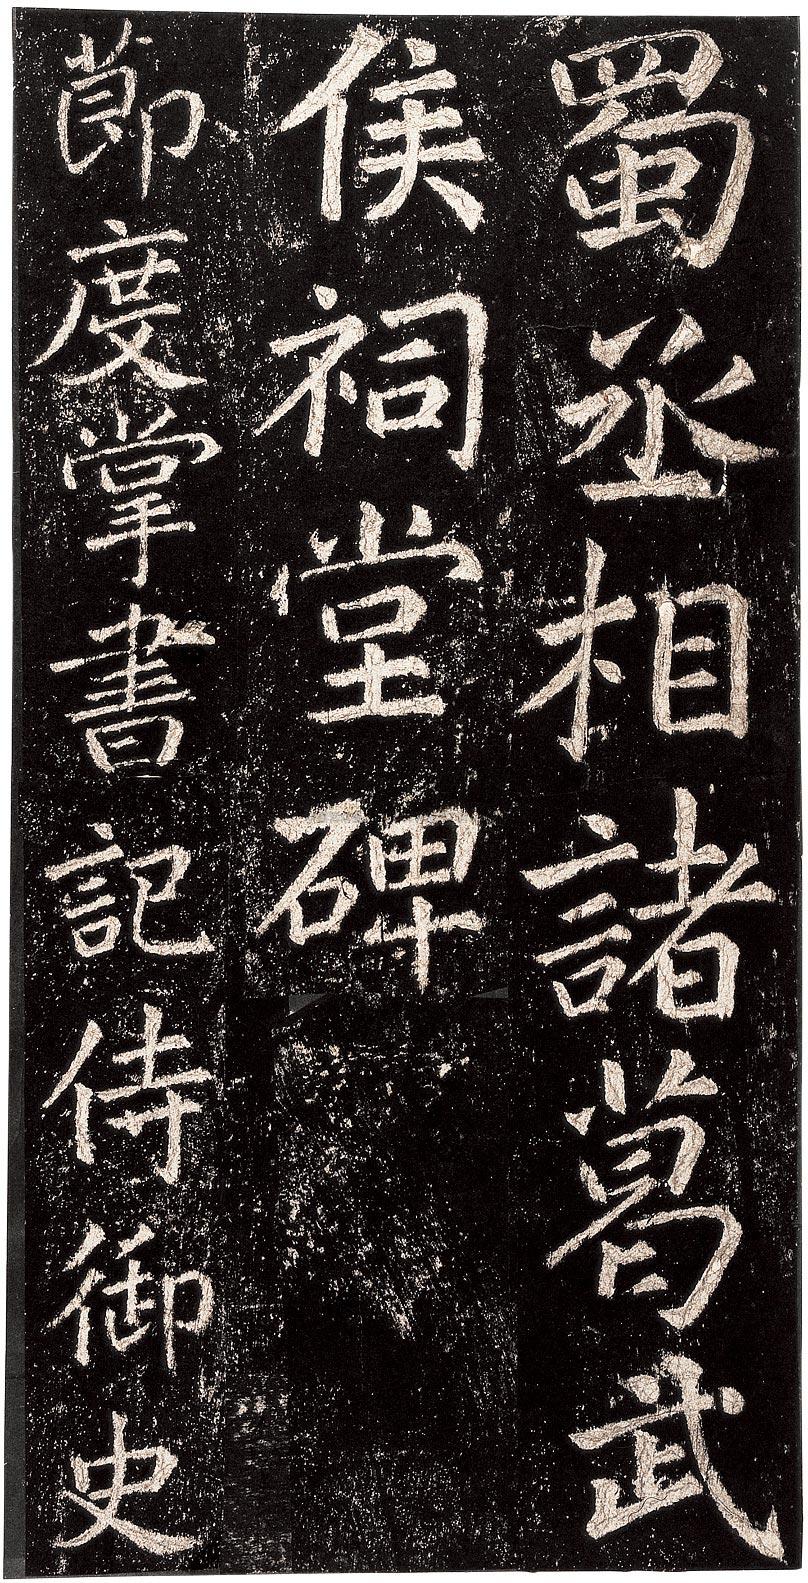 蜀丞相諸葛武
侯祠堂碑
節度掌書記侍御史